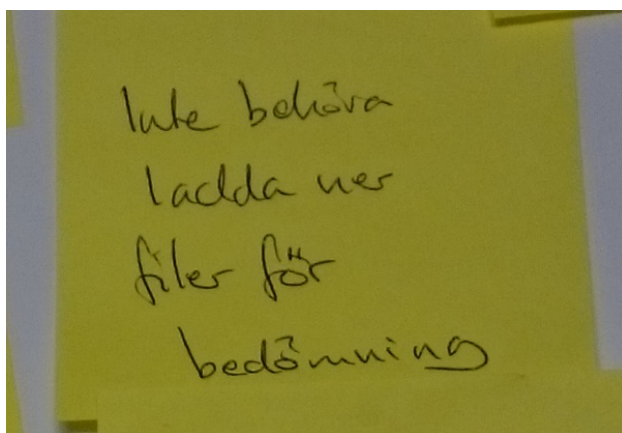 Inte behöva
ladda ner
filer för
bedömning